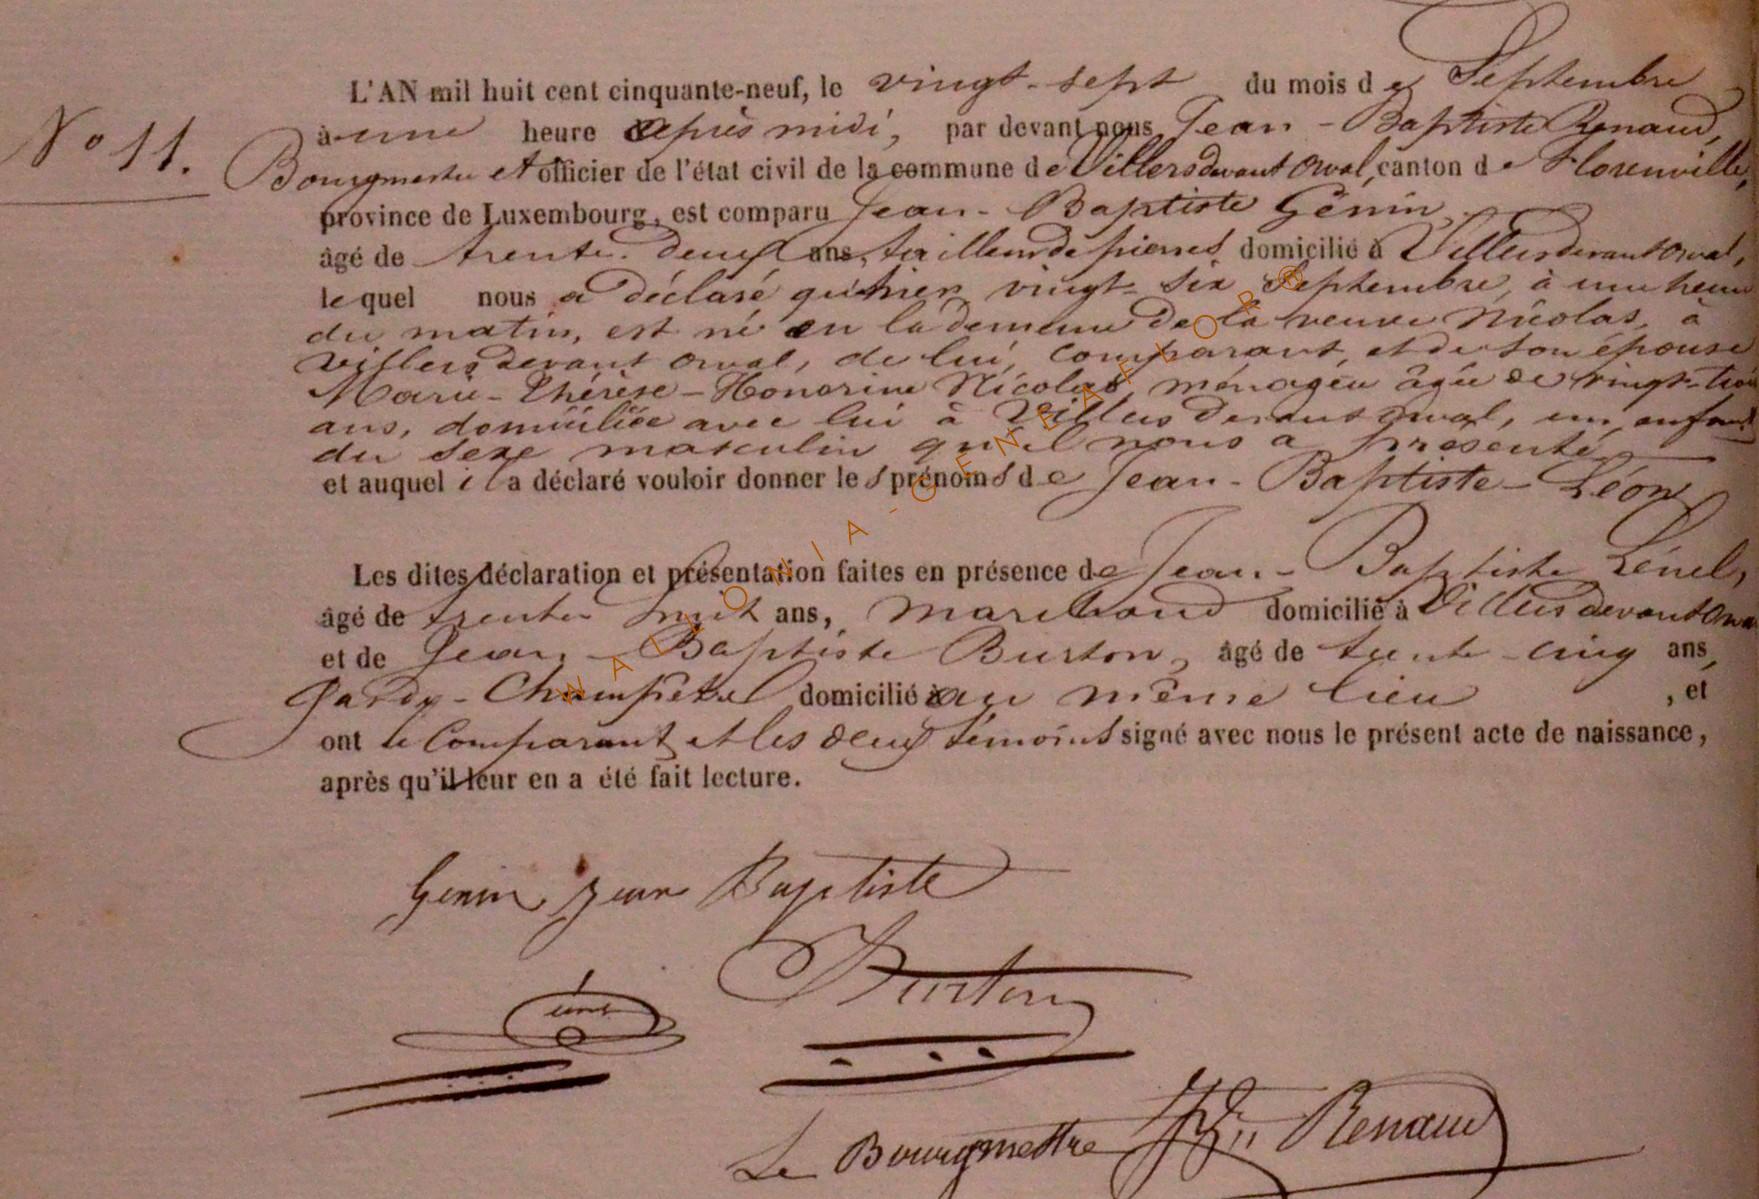 L'AN mil huit cent cinquante-neuf, le vingt-sept du mois de Septembre
N° 11.
à une heure après midi, par devant nous Jean-Baptiste Renaud,
Bourgmestre et officier de l'état civil de la commune de Villers devant Orval, canton de Florenville,
province de Luxembourg, est comparu Jean-Baptiste Génin,
âgé de trente-deux ans, tailleur de pierres domicilié à Villers devant Orval,
lequel nous a déclaré qu'hier vingt-six Septembre, à une heure
du matin, est né en la demeure de la veuve Nicolas, à
Villers devant Orval, de lui, comparant, et de son épouse
Marie-Thérèse-Honorine Nicolas ménagère âgée de vingt-trois
ans, domiciliée avec lui à Villers devant Orval, un enfant
du sexe masculin qu'il nous a présenté
et auquel il a déclaré vouloir donner les prénoms de Jean-Baptiste-Léon
Les dites déclaration et présentation faites en présence de Jean-Baptiste
âgé de trente huit ans, marchand domicilié à Villers devant Orval
et de Jean-Baptiste Burton, âgé de trente-cinq ans,
Garde-Champêtre domicilié au même lieu, et
ont le Comparant et les deux témoins signé avec nous le présent acte de naissance,
après qu'il leur en a été fait lecture.
Genin Jean Baptiste
Burton
Le Bourgmestre Renaud
WALLONIA-GENBAFLOR®